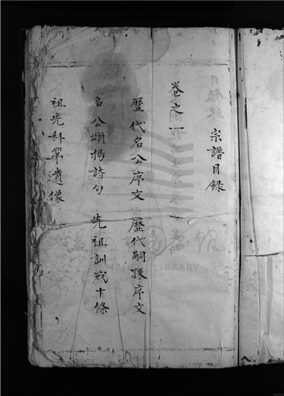 宗譜目錄
卷之一
歷代名公序文 歷代嗣孫序文
名公頌揚詩句 先祖訓戒十條
祖先科第遺像